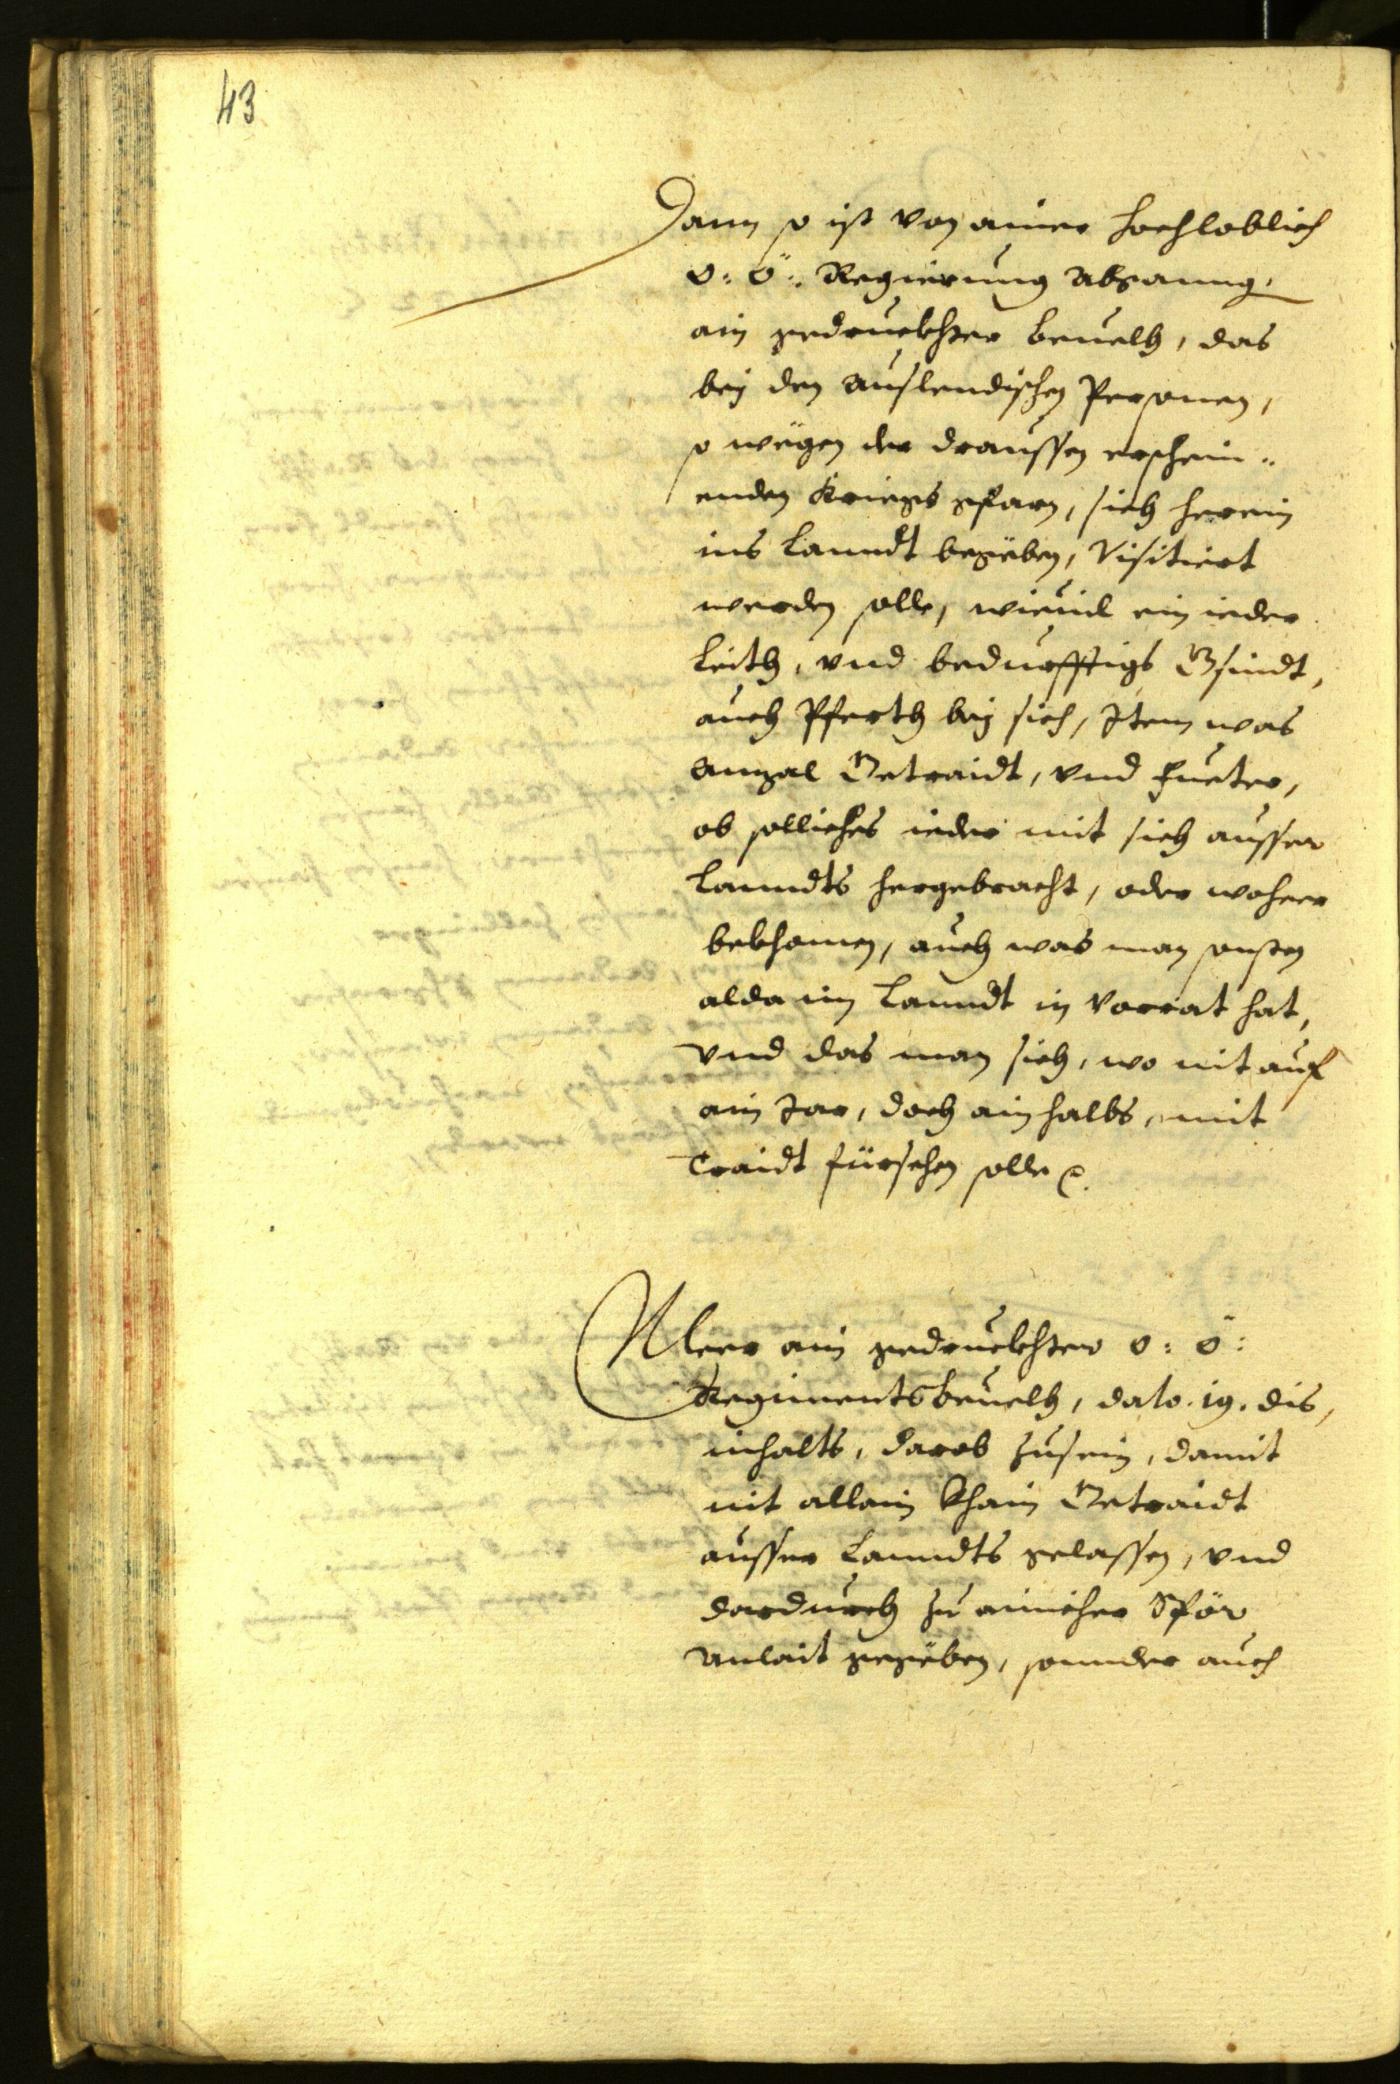 43
Dann so ist von ainer hochloblich
o: ö: Regierung abganng,
ain gedruckhter beuelh, das
bej den auslendischen Personen,
so wëgen der draussen erschein¬
enden Kriegs gfarn, sich herein
ins Lanndt begëben, Visitiert
werden solle, wieuil ein ieder
Leith, vnd bedurfftigs Gsindt,
auch Pferth bej sich, Item was
anzal Getraidt, vnd Fueter,
ob solliches ieder mit sich ausser
Lanndts hergebracht, oder woheer
bekhomen, auch was man sonsten
alda im Lanndt in Vorrat hat,
vnd das man sich, wo nit auf
ain Jar, doch ain halbs, mit
Traidt fürsehen solle
Meer ain gedruckhter o: ö:
Regimentsbeuelh, dato. 19. dis,
inhalts, darob zusein, damit
nit allain Khain Getraidt
ausser Lanndts gelassen, vnd
dardurch zu ainicher Spör
anlait gegëben, sonnder auch